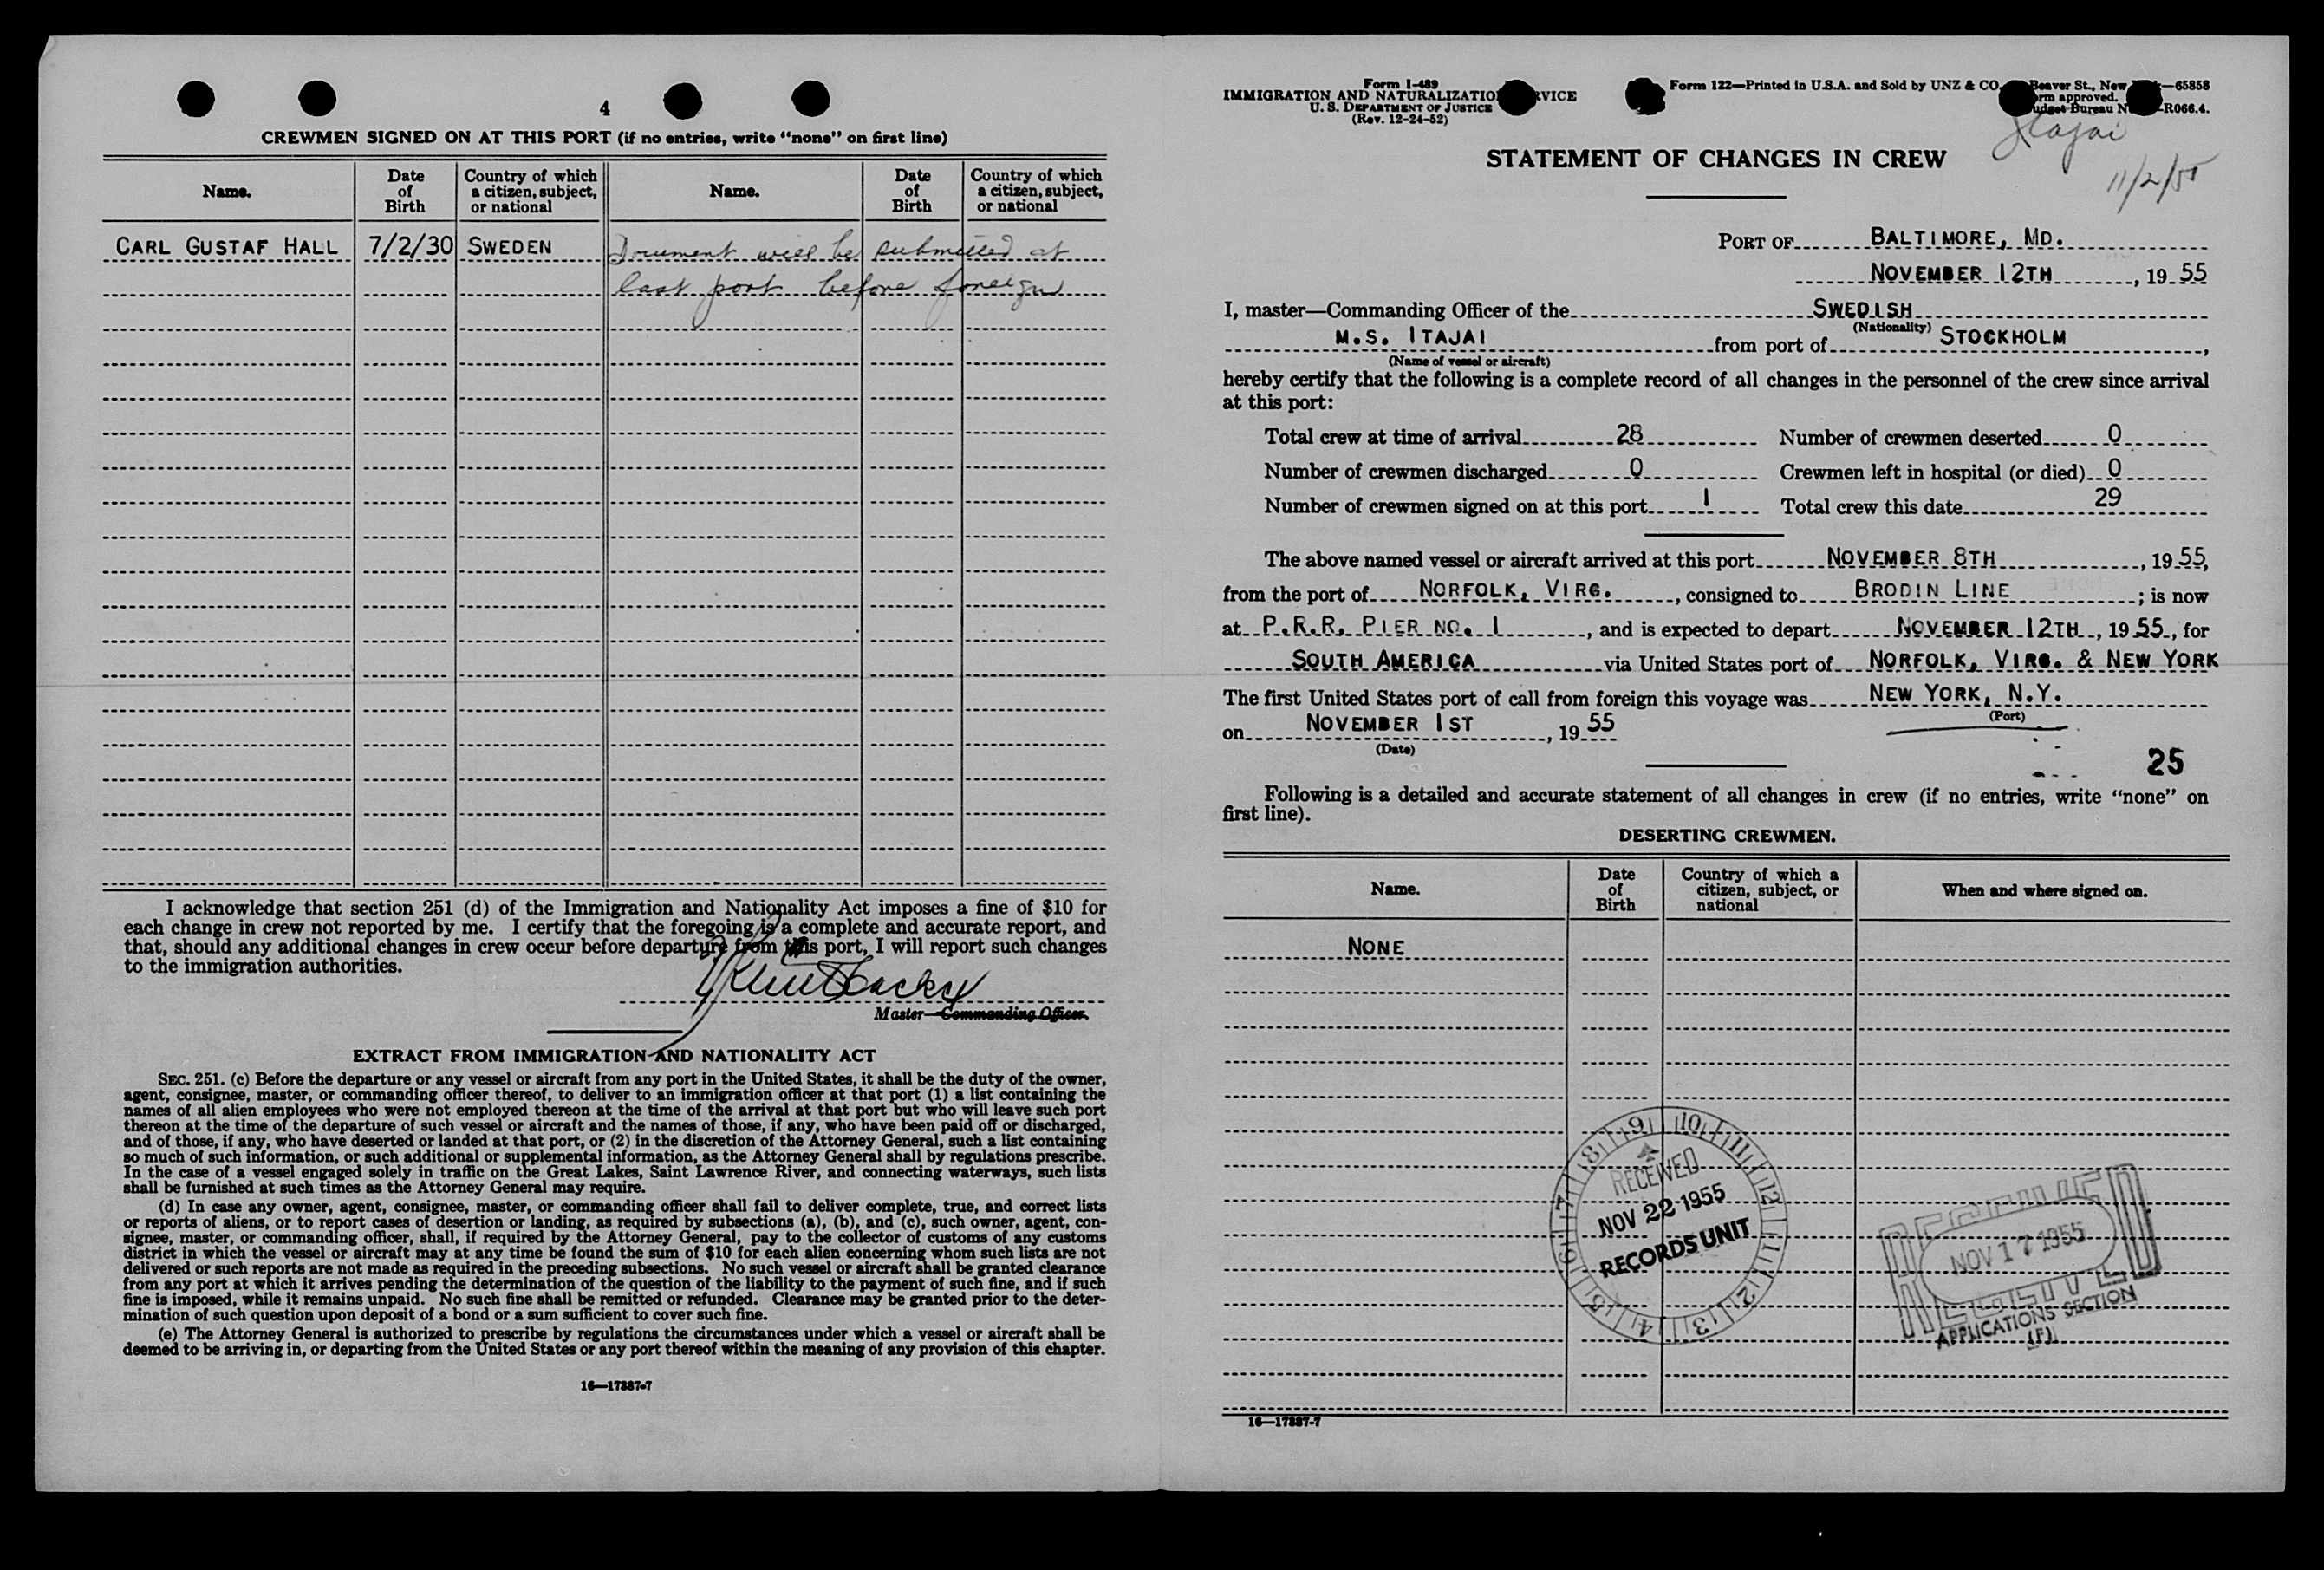 4
CREWMEN SIGNED ON AT THIS PORT (if no entries, write “none” on first line)
Name.
Date of Birth
Country of which a citizen, subject, or national
Name.
Date of Birth
Country of which a citizen, subject, or national
CARL GUSTAF HALL 7/2/30 SWEDEN Document will be submitted at
last port before foreign
I acknowledge that section 251 (d) of the Immigration and Nationality Act imposes a fine of $10 for
each change in crew not reported by me. I certify that the foregoing is a complete and accurate report, and
that, should any additional changes in crew occur before departure from this port, I will report such changes
to the immigration authorities.
Master—Commanding Officer.
EXTRACT FROM IMMIGRATION AND NATIONALITY ACT
SEC. 251. (c) Before the departure or any vessel or aircraft from any port in the United States, it shall be the duty of the owner,
agent, consignee, master, or commanding officer thereof, to deliver to an immigration officer at that port (1) a list containing the
names of all alien employees who were not employed thereon at the time of the arrival at that port but who will leave such port
thereon at the time of the departure of such vessel or aircraft and the names of those, if any, who have been paid off or discharged,
and of those, if any, who have deserted or landed at that port, or (2) in the discretion of the Attorney General, such a list containing
so much of such information, or such additional or supplemental information, as the Attorney General shall by regulations prescribe.
In the case of a vessel engaged solely in traffic on the Great Lakes, Saint Lawrence River, and connecting waterways, such lists
shall be furnished at such times as the Attorney General may require.
(d) In case any owner, agent, consignee, master, or commanding officer shall fail to deliver complete, true, and correct lists
or reports of aliens, or to report cases of desertion or landing, as required by subsections (a), (b), and (c), such owner, agent, con-
signee, master, or commanding officer, shall, if required by the Attorney General, pay to the collector of customs of any customs
district in which the vessel or aircraft may at any time be found the sum of $10 for each alien concerning whom such lists are not
delivered or such reports are not made as required in the preceding subsections. No such vessel or aircraft shall be granted clearance
from any port at which it arrives pending the determination of the question of the liability to the payment of such fine, and if such
fine is imposed, while it remains unpaid. No such fine shall be remitted or refunded. Clearance may be granted prior to the deter-
mination of such question upon deposit of a bond or a sum sufficient to cover such fine.
(e) The Attorney General is authorized to prescribe by regulations the circumstances under which a vessel or aircraft shall be
deemed to be arriving in, or departing from the United States or any port thereof within the meaning of any provision of this chapter.
16—17887-7
Form I-489
IMMIGRATION AND NATURALIZATION SERVICE
U. S. DEPARTMENT OF JUSTICE
(Rev. 12-24-52)
Form 122—Printed in U.S.A. and Sold by UNZ & CO. Beaver St., New —65858
approved.
Bureau R066.4.
Itajai
11/2/55
STATEMENT OF CHANGES IN CREW
PORT OF BALTIMORE, MD.
NOVEMBER 12TH, 19 55
I, master—Commanding Officer of the SWEDISH
(Nationality)
M.S. ITAJAI from port of STOCKHOLM,
(Name of vessel or aircraft)
hereby certify that the following is a complete record of all changes in the personnel of the crew since arrival
at this port:
Total crew at time of arrival 28 Number of crewmen deserted 0
Number of crewmen discharged 0 Crewmen left in hospital (or died) 0
Number of crewmen signed on at this port 1 Total crew this date 29
The above named vessel or aircraft arrived at this port NOVEMBER 8TH, 19 55,
from the port of NORFOLK, VIRG., consigned to BRODIN LINE; is now
at P.R.R. PIER NO. 1, and is expected to depart NOVEMBER 12TH, 19 55, for
SOUTH AMERICA via United States port of NORFOLK, VIRG. & NEW YORK
The first United States port of call from foreign this voyage was NEW YORK, N.Y.
(Port)
on NOVEMBER 1ST, 19 55
(Date)
25
Following is a detailed and accurate statement of all changes in crew (if no entries, write “none” on
first line).
DESERTING CREWMEN.
Name.
Date of Birth
Country of which a citizen, subject, or national
When and where signed on.
NONE
9 10 11 12 1 2 3 4 5 6 7 8
RECEIVED
NOV 22 1955
RECORDS UNIT
RECEIVED
NOV 17 1955
RECEIVED
APPLICATIONS SECTION
(F)
16—17887-7